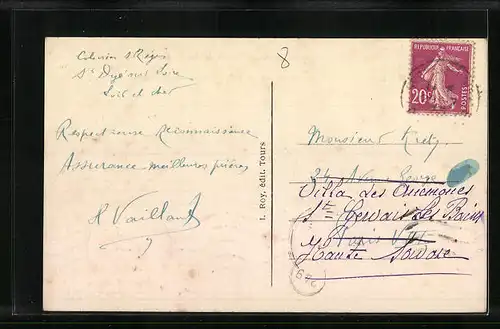 Colonie St Régis
St Dyé sur Loire
Loir et cher
Respectueuse reconnaissance
Assurance meilleures prières
R Vaillant
I. Roy, édit. Tours
8
RÉPUBLIQUE FRANÇAISE
20c
POSTES
Monsieur
24
Villa des Anémones
St Gervais les Bains
Paris VIII
Haute Savoie